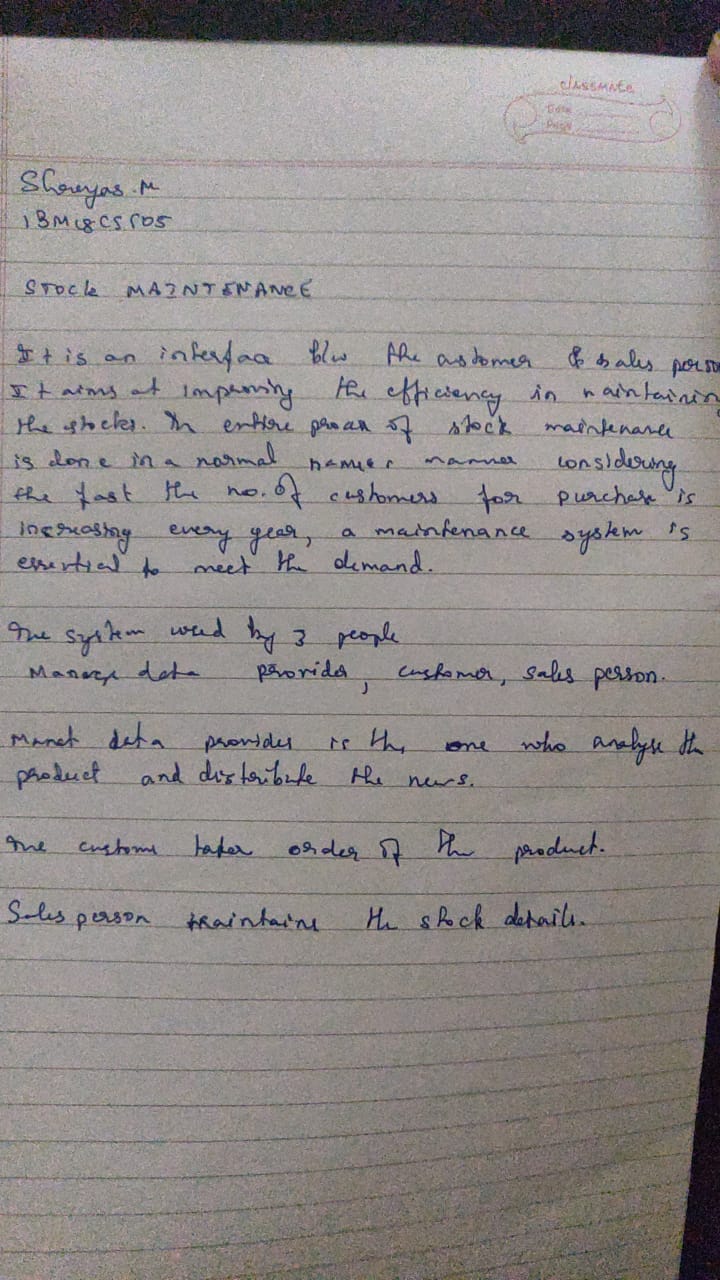 classmate
Date
Page
Shreyas.M
1BM18CS505
STOCK MAINTENANCE
It is an interface b/w the customer & sales person
It aims at improving the efficiency in maintaining
the stocks. The entire process of stock maintenance
is done in a normal manner considering
the fast the no. of customers for purchase is
increasing every year, a maintenance system is
essential to meet the demand.
The system used by 3 people
data provider, customer, sales person.
data provider is the one who analyse the
product and distribute the news.
The custome takes order of the product.
Sales person maintains the stock details.